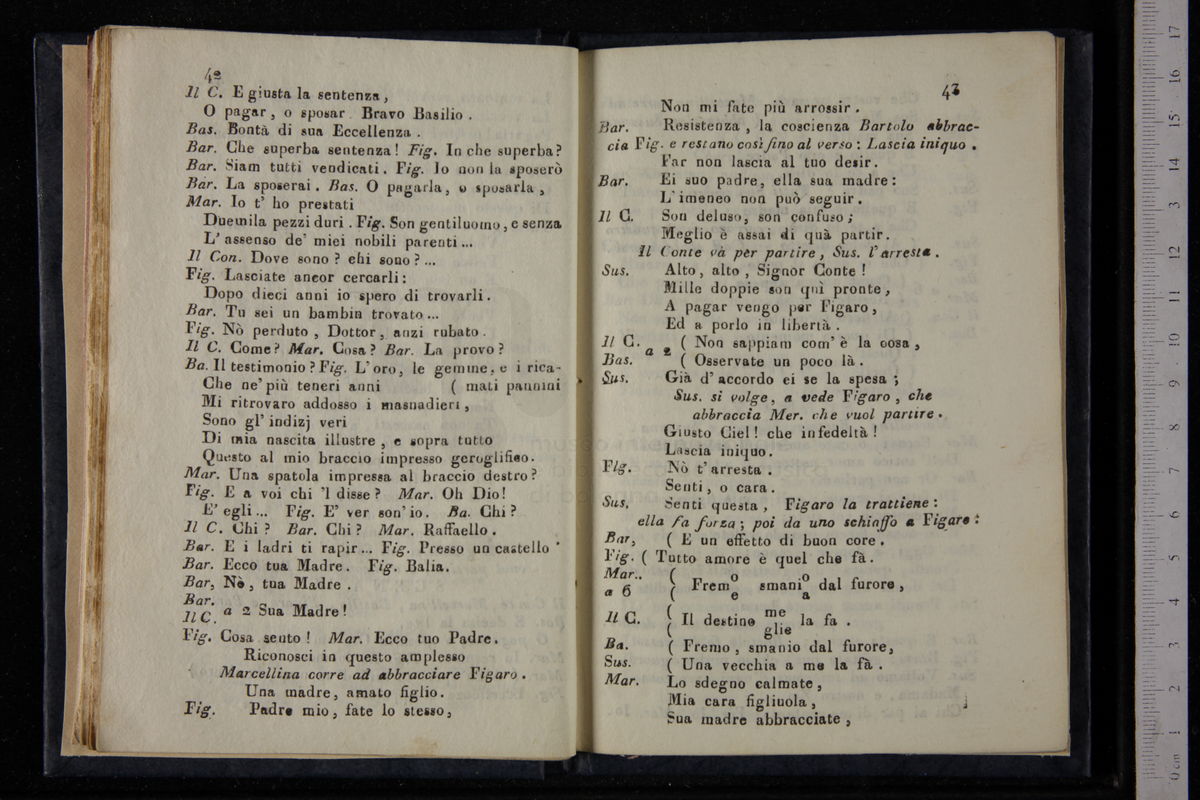 42
Il C. E giusta la sentenza,
O pagar, o sposar. Bravo Basilio.
Bas. Bontà di sua Eccellenza.
Bar. Che superba sentenza! Fig. In che superba?
Bar. Siam tutti vendicati. Fig. Io non la sposerò
Bar. La sposerai. Bas. O pagarla, o sposarla,
Mar. Io t' ho prestati
Duemila pezzi duri. Fig. Son gentiluomo, e senza
L' assenso de' miei nobili parenti...
Il Con. Dove sono? chi sono?...
Fig. Lasciate ancor cercarli:
Dopo dieci anni io spero di trovarli.
Bar. Tu sei un bambin trovato...
Fig. Nò perduto, Dottor, anzi rubato.
Il C. Come? Mar. Cosa? Bar. La provo?
Ba. Il testimonio? Fig. L' oro, le gemme, e i rica-
Che ne' più teneri anni ( mati pannini
Mi ritrovaro addosso i masnadieri,
Sono gl' indizj veri
Di mia nascita illustre, e sopra tutto
Questo al mio braccio impresso geroglifico.
Mar. Una spatola impressa al braccio destro?
Fig. E a voi chi 'l disse? Mar. Oh Dio!
E' egli... Fig. E' ver son' io. Ba. Chi?
Il C. Chi? Bar. Chi? Mar. Raffaello.
Bar. E i ladri ti rapir... Fig. Presso un castello
Bar. Ecco tua Madre. Fig. Balia.
Bar, Nò, tua Madre.
Bar.
Il C. a 2 Sua Madre!
Fig. Cosa sento! Mar. Ecco tuo Padre.
Riconosci in questo amplesso
Marcellina corre ad abbracciare Figaro.
Una madre, amato figlio.
Fig. Padre mio, fate lo stesso,
43
Non mi fate più arrossir.
Bar. Resistenza, la coscienza Bartolo abbrac-
cia Fig. e restano così fino al verso: Lascia iniquo.
Far non lascia al tuo desir.
Bar. Ei suo padre, ella sua madre:
L' imeneo non può seguir.
Il C. Son deluso, son confuso;
Meglio è assai di quà partir.
Il Conte và per partire, Sus. l' arresta.
Sus. Alto, alto, Signor Conte!
Mille doppie son quì pronte,
A pagar vengo per Figaro,
Ed a porlo in libertà.
Il C. a 2 ( Non sappiam com' è la cosa,
Bas. ( Osservate un poco là.
Sus. Già d' accordo ei se la spesa;
Sus. si volge, a vede Figaro, che
abbraccia Mer. che vuol partire.
Giusto Ciel! che infedeltà!
Lascia iniquo.
Fig. Nò t' arresta.
Senti, o cara.
Sus, Senti questa, Figaro la trattiene:
ella fa forza; poi da uno schiaffo a Figaro:
Bar, ( E un effetto di buon core.
Fig. ( Tutto amore è quel che fà.
Mar.. ( o o
a 6 ( Frem smani dal furore,
e a
Il C. ( Il destino me la fa.
( glie
Ba. ( Fremo, smanio dal furore,
Sus. ( Una vecchia a me la fà.
Mar. Lo sdegno calmate,
Mia cara figliuola,
Sua madre abbracciate,